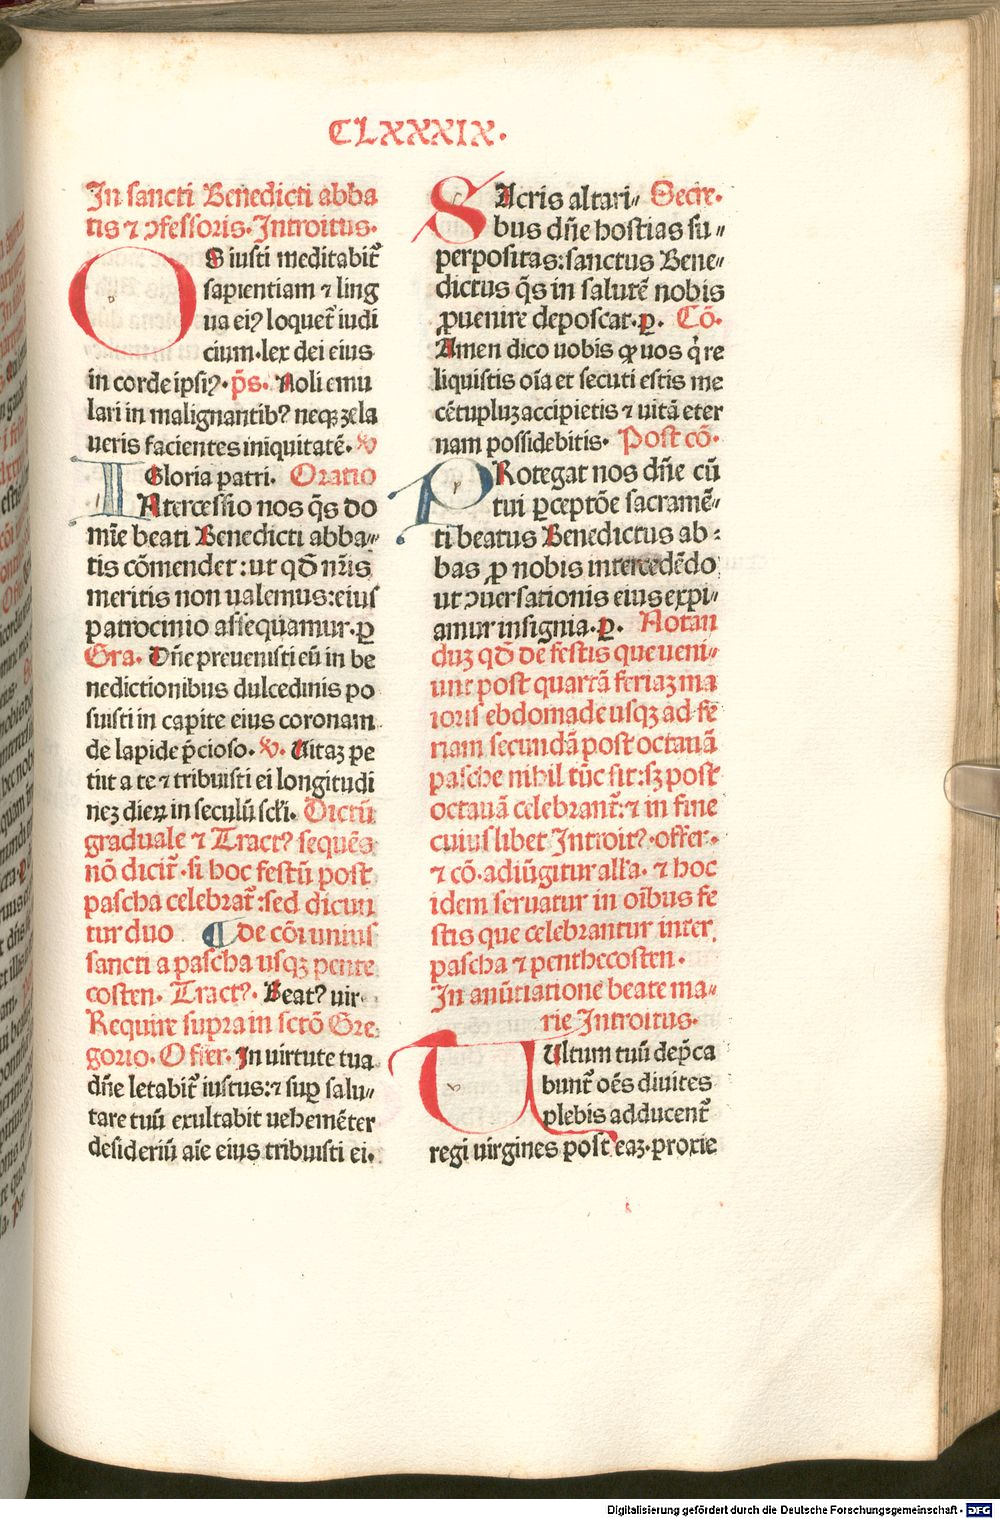 CLXXXIX.
In sancti Benedicti abba
tis ⁊ ↄfessoris. Introitus.
OS iusti meditabit᷑
sapientiam ⁊ ling
ua eiꝰ loquet᷑ iudi
cium. lex dei eius
in corde ipsiꝰ. p̄s. Noli emu
lari in malignantibꝰ neqꝫ zela
ueris faciētes iniquitatē. ℣
Gloria patri. Oratio
INtercessio nos q̄s do
mīe beati Benedicti abba⸗
tis cōmendet: ut qđ nr̄is
meritis non ualemus: eius
patrocinio assequamur. ꝑ
Gra. Dn̄e preuenisti eū in be
nedictionibus dulcedinis po
suisti in capite eius coronam
de lapide p̄cioso. ℣. Uitaꝫ pe
tiit a te ⁊ tribuisti ei longitudi
neꝫ dieꝝ in seculū scl̄i. Dictū
graduale ⁊ Tractꝰ sequēs
nō dicit᷑. si hoc festū post
pascha celebrat᷑: sed dicun
tur duo ¶ de cōi unius
sancti a pascha usqꝫ pente
costen. Tractꝰ. Beatꝰ uir.
Require supra in scr̄o Gre
gorio. Offer. In uirtute tua
dn̄e letabit᷑ iustus: ⁊ suꝑ salu⸗
tare tuū exultabit uehemēter
desideriū aīe eius tribuisti ei.
SAcris altari⸗ Secre.
bus dn̄e hostias su⸗
perpositas: sanctus Bene⸗
dictus q̄s in salutē nobis
ꝓuenire deposcat. ꝑ. Cō.
Amen dico uobis ꝙ uos q̇ re
liquistis oīa et secuti estis me
cētupluꝫ accipietis ⁊ uitā eter
nam possidebitis. Post cō.
PRotegat nos dn̄e cū
tui ꝑceptōe sacramē⸗
ti beatus Benedictus ab⸗
bas ꝓ nobis intercedēdo
ut ↄuersationis eius expi⸗
amur insignia. ꝑ. Notan
duꝫ qđ de festis que ueni⸗
unt post quartā feriaꝫ ma
ioris ebdomade usqꝫ ad fe
riam secundā post octauā
pasche nihil tūc fit: sꝫ post
octauā celebrant᷑: ⁊ in fine
cuiuslibet Introitꝰ. offer.
⁊ cō. adiūgitur all̄a. ⁊ hoc
idem seruatur in oībus fe
stis que celebrantur inter
pascha ⁊ penthecosten.
In anūtiatione beate ma⸗
rie Introitus.
UUltum tuū dep̄ca
bunt᷑ oēs diuites
plebis adducent᷑
regi uirgines post eaꝫ. proxie
Digitalisierung gefördert durch die Deutsche Forschungsgemeinschaft - DFG